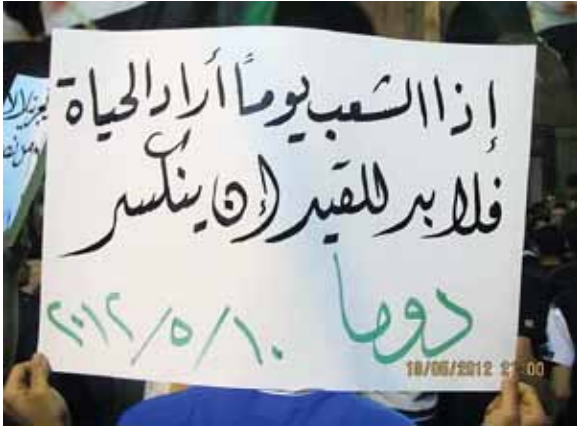 إذا الشعب يوماً أراد الحياة
فلا بد للقيد إن ينكسر
دوما
٢٠١٢/٥/١٠
21:00